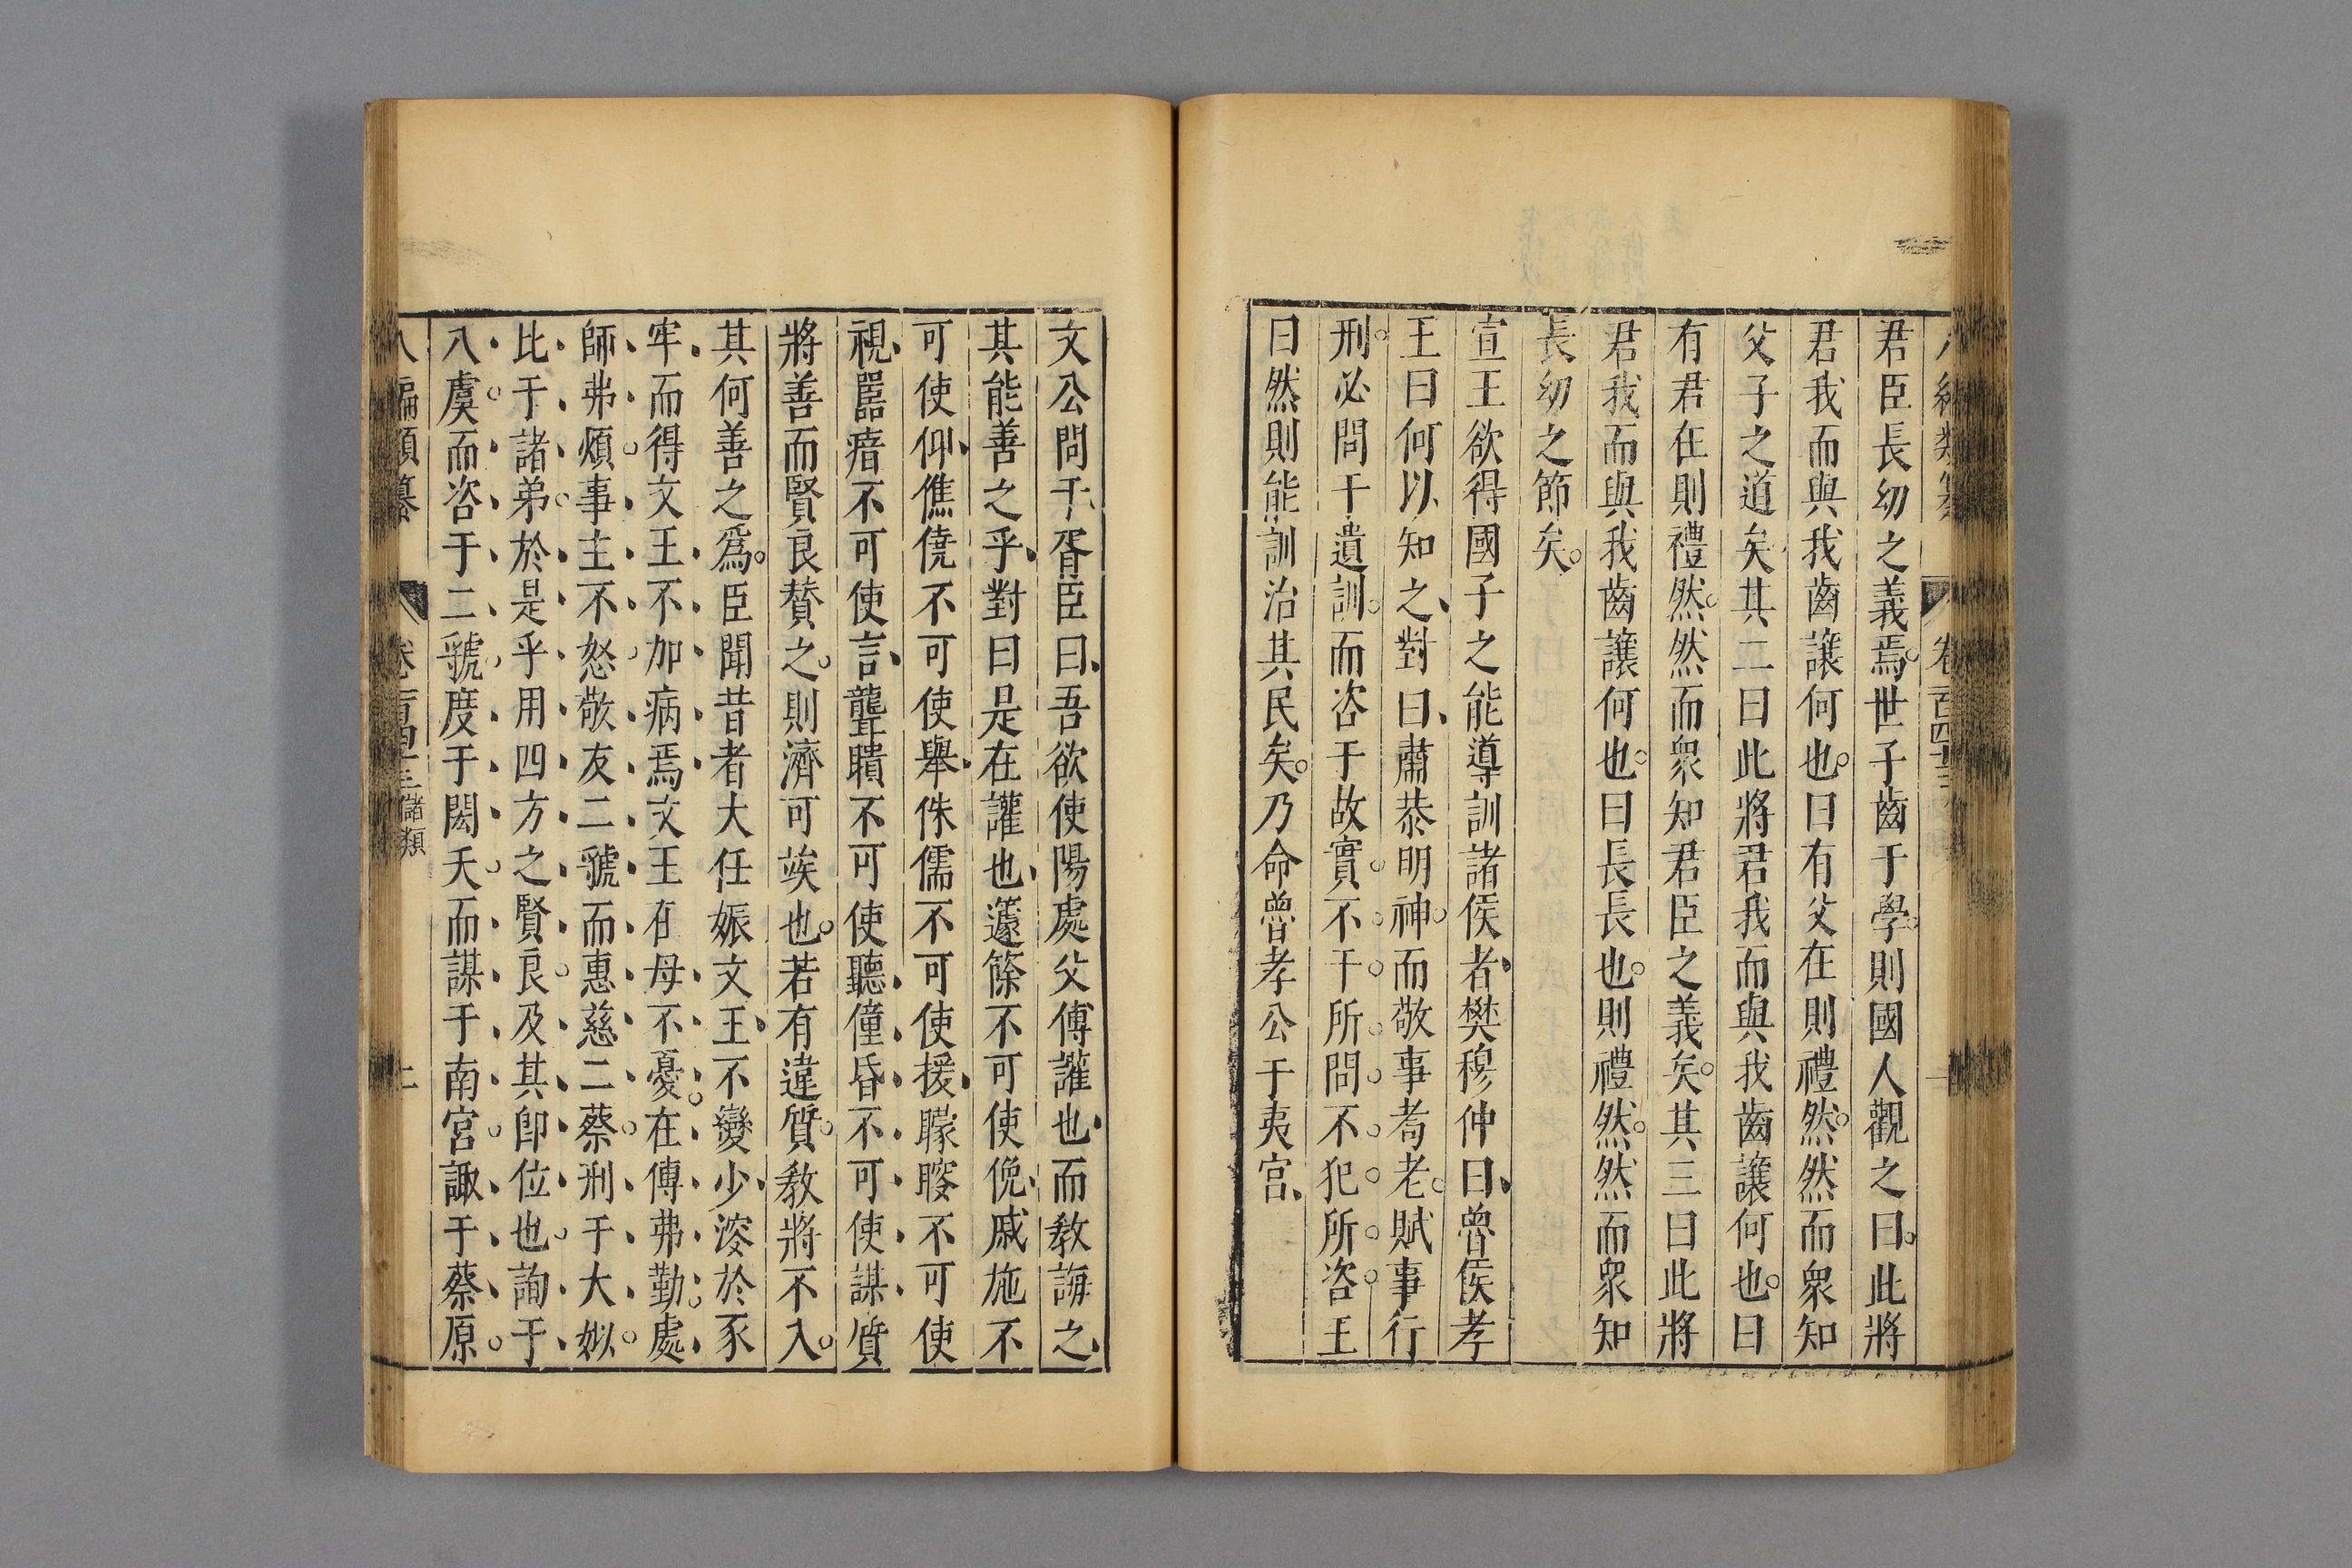 君臣長幼之義焉。世子齒于學。則國人觀之曰。此將
君我而與我齒讓何也。曰有父在則禮然。然而衆知
父子之道矣其二曰此將君我而與我齒讓何也。曰
有君在則禮然。然而衆知君臣之義矣。其三曰此將
君我而與我齒讓何也。曰長長也。則禮然。然而衆知
長幼之節矣。
宣王欲得國子之能導訓諸侯者、樊穆仲曰、魯侯孝
王曰何以知之、對曰、肅恭明神。而敬事耇老。賦事行
刑。必問于遺訓。而咨于故實。不干所問不犯所咨王
曰然則能訓治其民矣。乃命魯孝公于夷宮、
文公問于胥臣曰、吾欲使陽處父傅讙也、而敎誨之、
其能善之乎、對曰是在讙也、蘧篨不可使俛、戚施不
可使仰、僬僥不可使舉、侏儒不可使援、矇瞍不可使
視、嚚瘖不可使言、聾聵不可使聽、僮昏不可使謀、質
將善而賢良贊之。則濟可竢也。若有違質。敎將不入。
其何善之爲。臣聞昔者大任娠文王、不變少溲於豕
牢、而得文王、不加病焉、文王在母不憂。在傅弗勤。處
師弗煩。事主不怒。敬友二虢、而惠慈二蔡。刑于大姒。
比于諸弟。於是乎用四方之賢良。及其卽位也。詢于
八虞。而咨于二虢。度于閎夭。而謀于南宮。諏于蔡原。
八編類纂 卷一百四十三 儲類 二